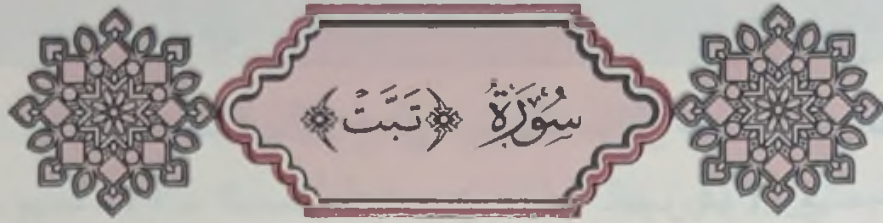 سُورَةُ ﴿تَبَّتْ﴾